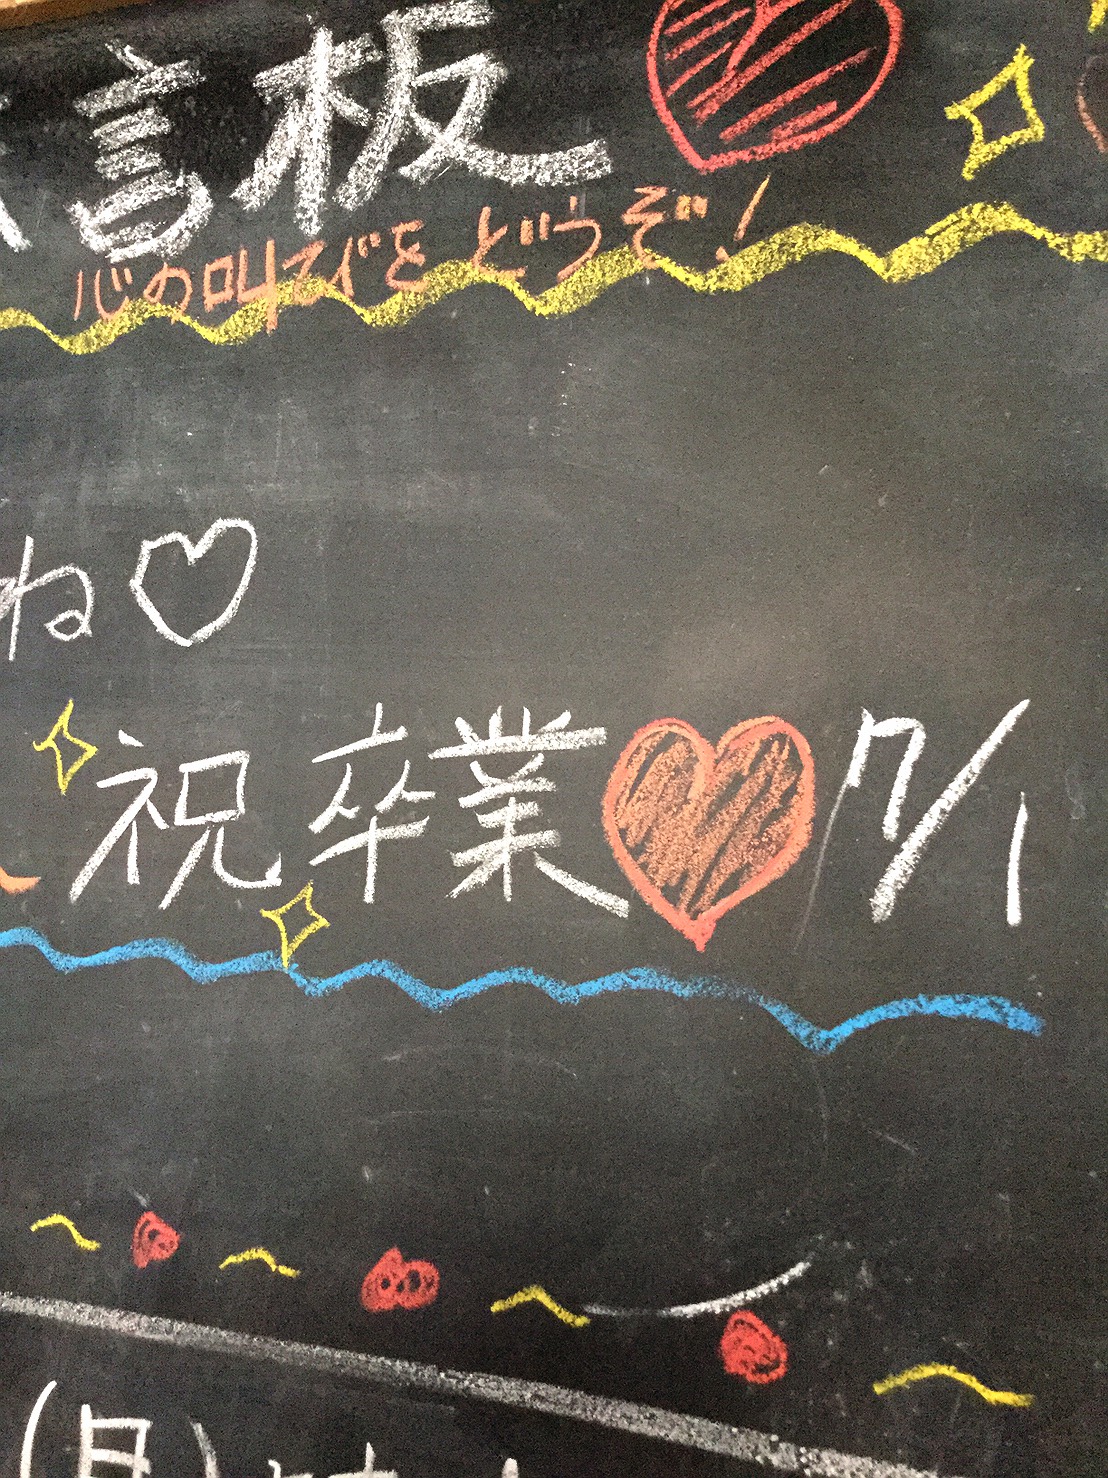 言板
心の叫びをどうぞ!
ね♡
祝卒業♥7/1
(月)